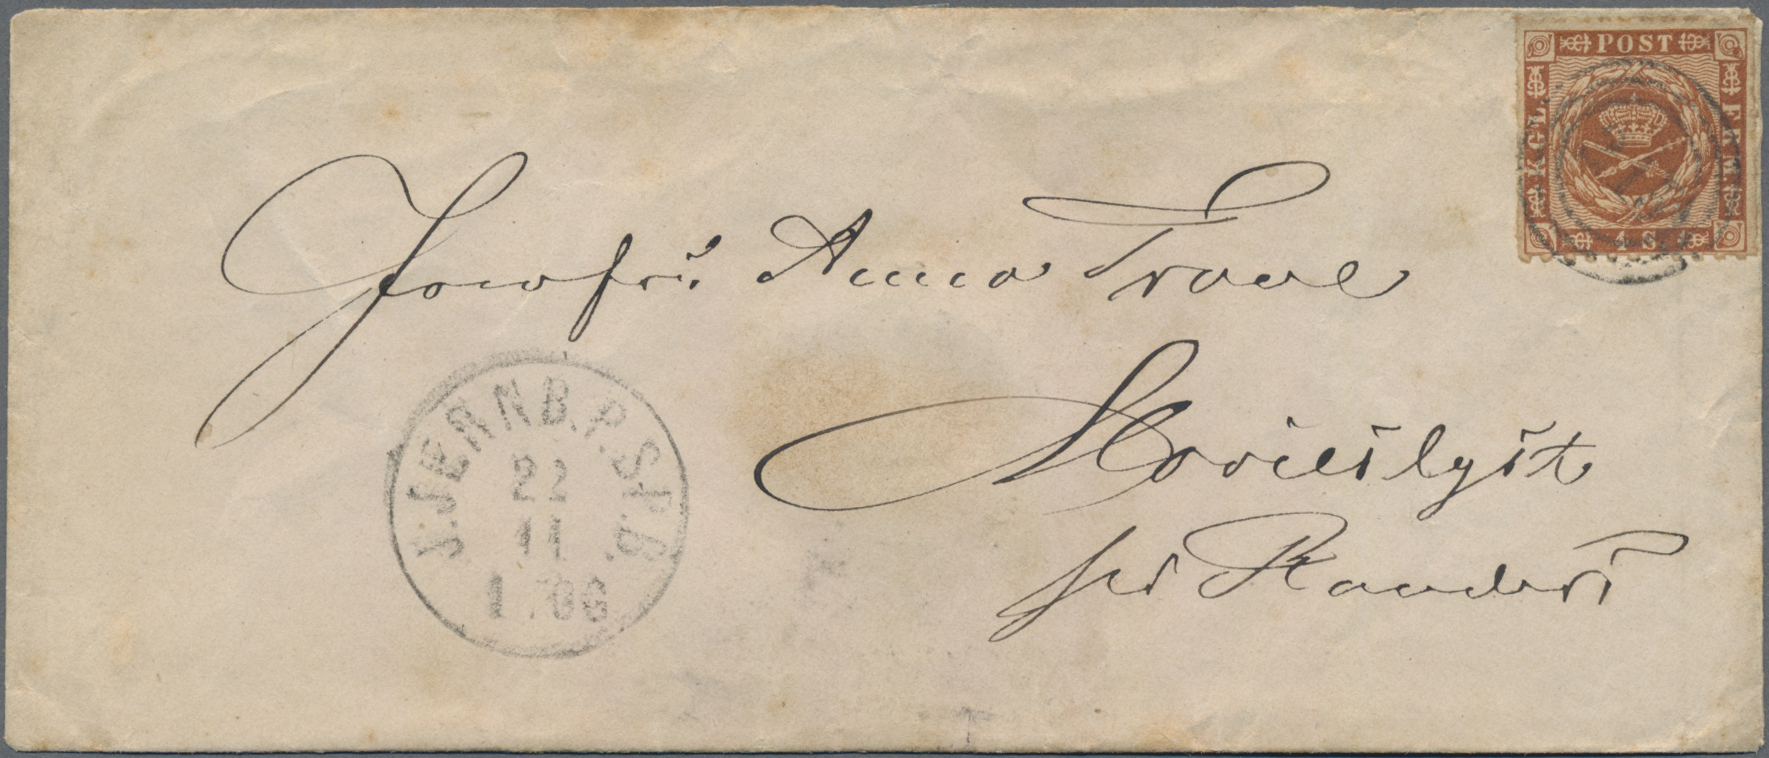 POST
KGL. FRM.
4 S.
Jomfru Anna Traae
Slovielslyst
per Randers
S.JERNB.P.SP.B.
22
11
1 TOG